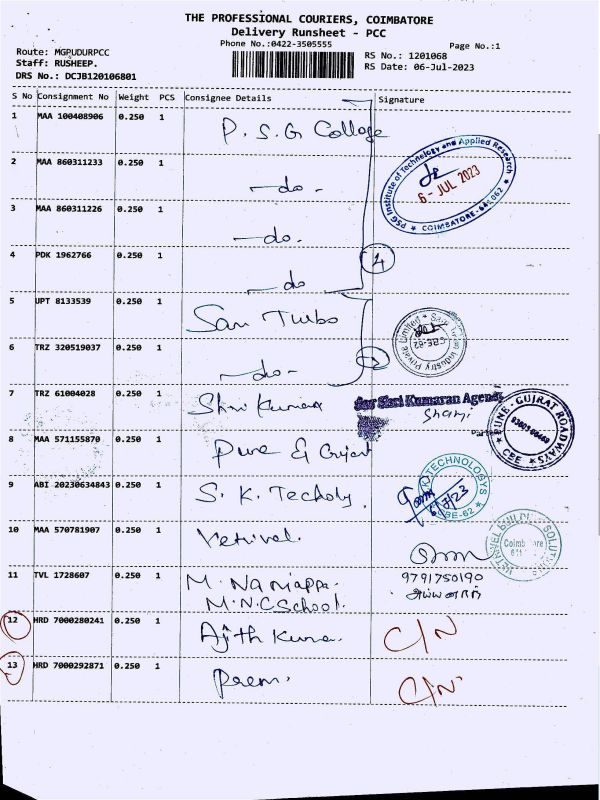 THE PROFESSIONAL COURIERS, COIMBATORE
Delivery Runsheet - PCC
Phone No.:0422-3505555
Page No.:1
Route: MGPUDURPCC
Staff: RUSHEEP.
DRS No.: DCJB120106801
RS No.: 1201068
RS Date: 06-Jul-2023
S No Consignment No Weight PCS Consignee Details Signature
1 MAA 100408906 0.250 1 P.S.G College
PSG Institute of Technology and Applied Research
6 - JUL 2023
★ COIMBATORE-641062 ★
2 MAA 860311233 0.250 1 -do-
3 MAA 860311226 0.250 1 -do.
4 PDK 1962766 0.250 1 -do
4
5 UPT 8133539 0.250 1 San Turbo
CBE-62
6 TRZ 320519037 0.250 1 -do-
7 TRZ 61004028 0.250 1 Shri Kumaran
for Shri Kumaran Agency
PUNE-GUJRAT ROADWAYS
★ CBE ★
8 MAA 571155870 0.250 1 Pune & Gujart
9 ABI 20230634843 0.250 1 S. K. Techoly
TECHNOLOGYS
CBE-62 ★
6/7/23
10 MAA 570781907 0.250 1 Vetrivel.
SOLUTIONS
11 TVL 1728607 0.250 1 M. Naniappa.
M.N.C School.
9791750190
12 HRD 7000280241 0.250 1 Ajith Kumar. C/N
13 HRD 7000292871 0.250 1 Prem. C/N